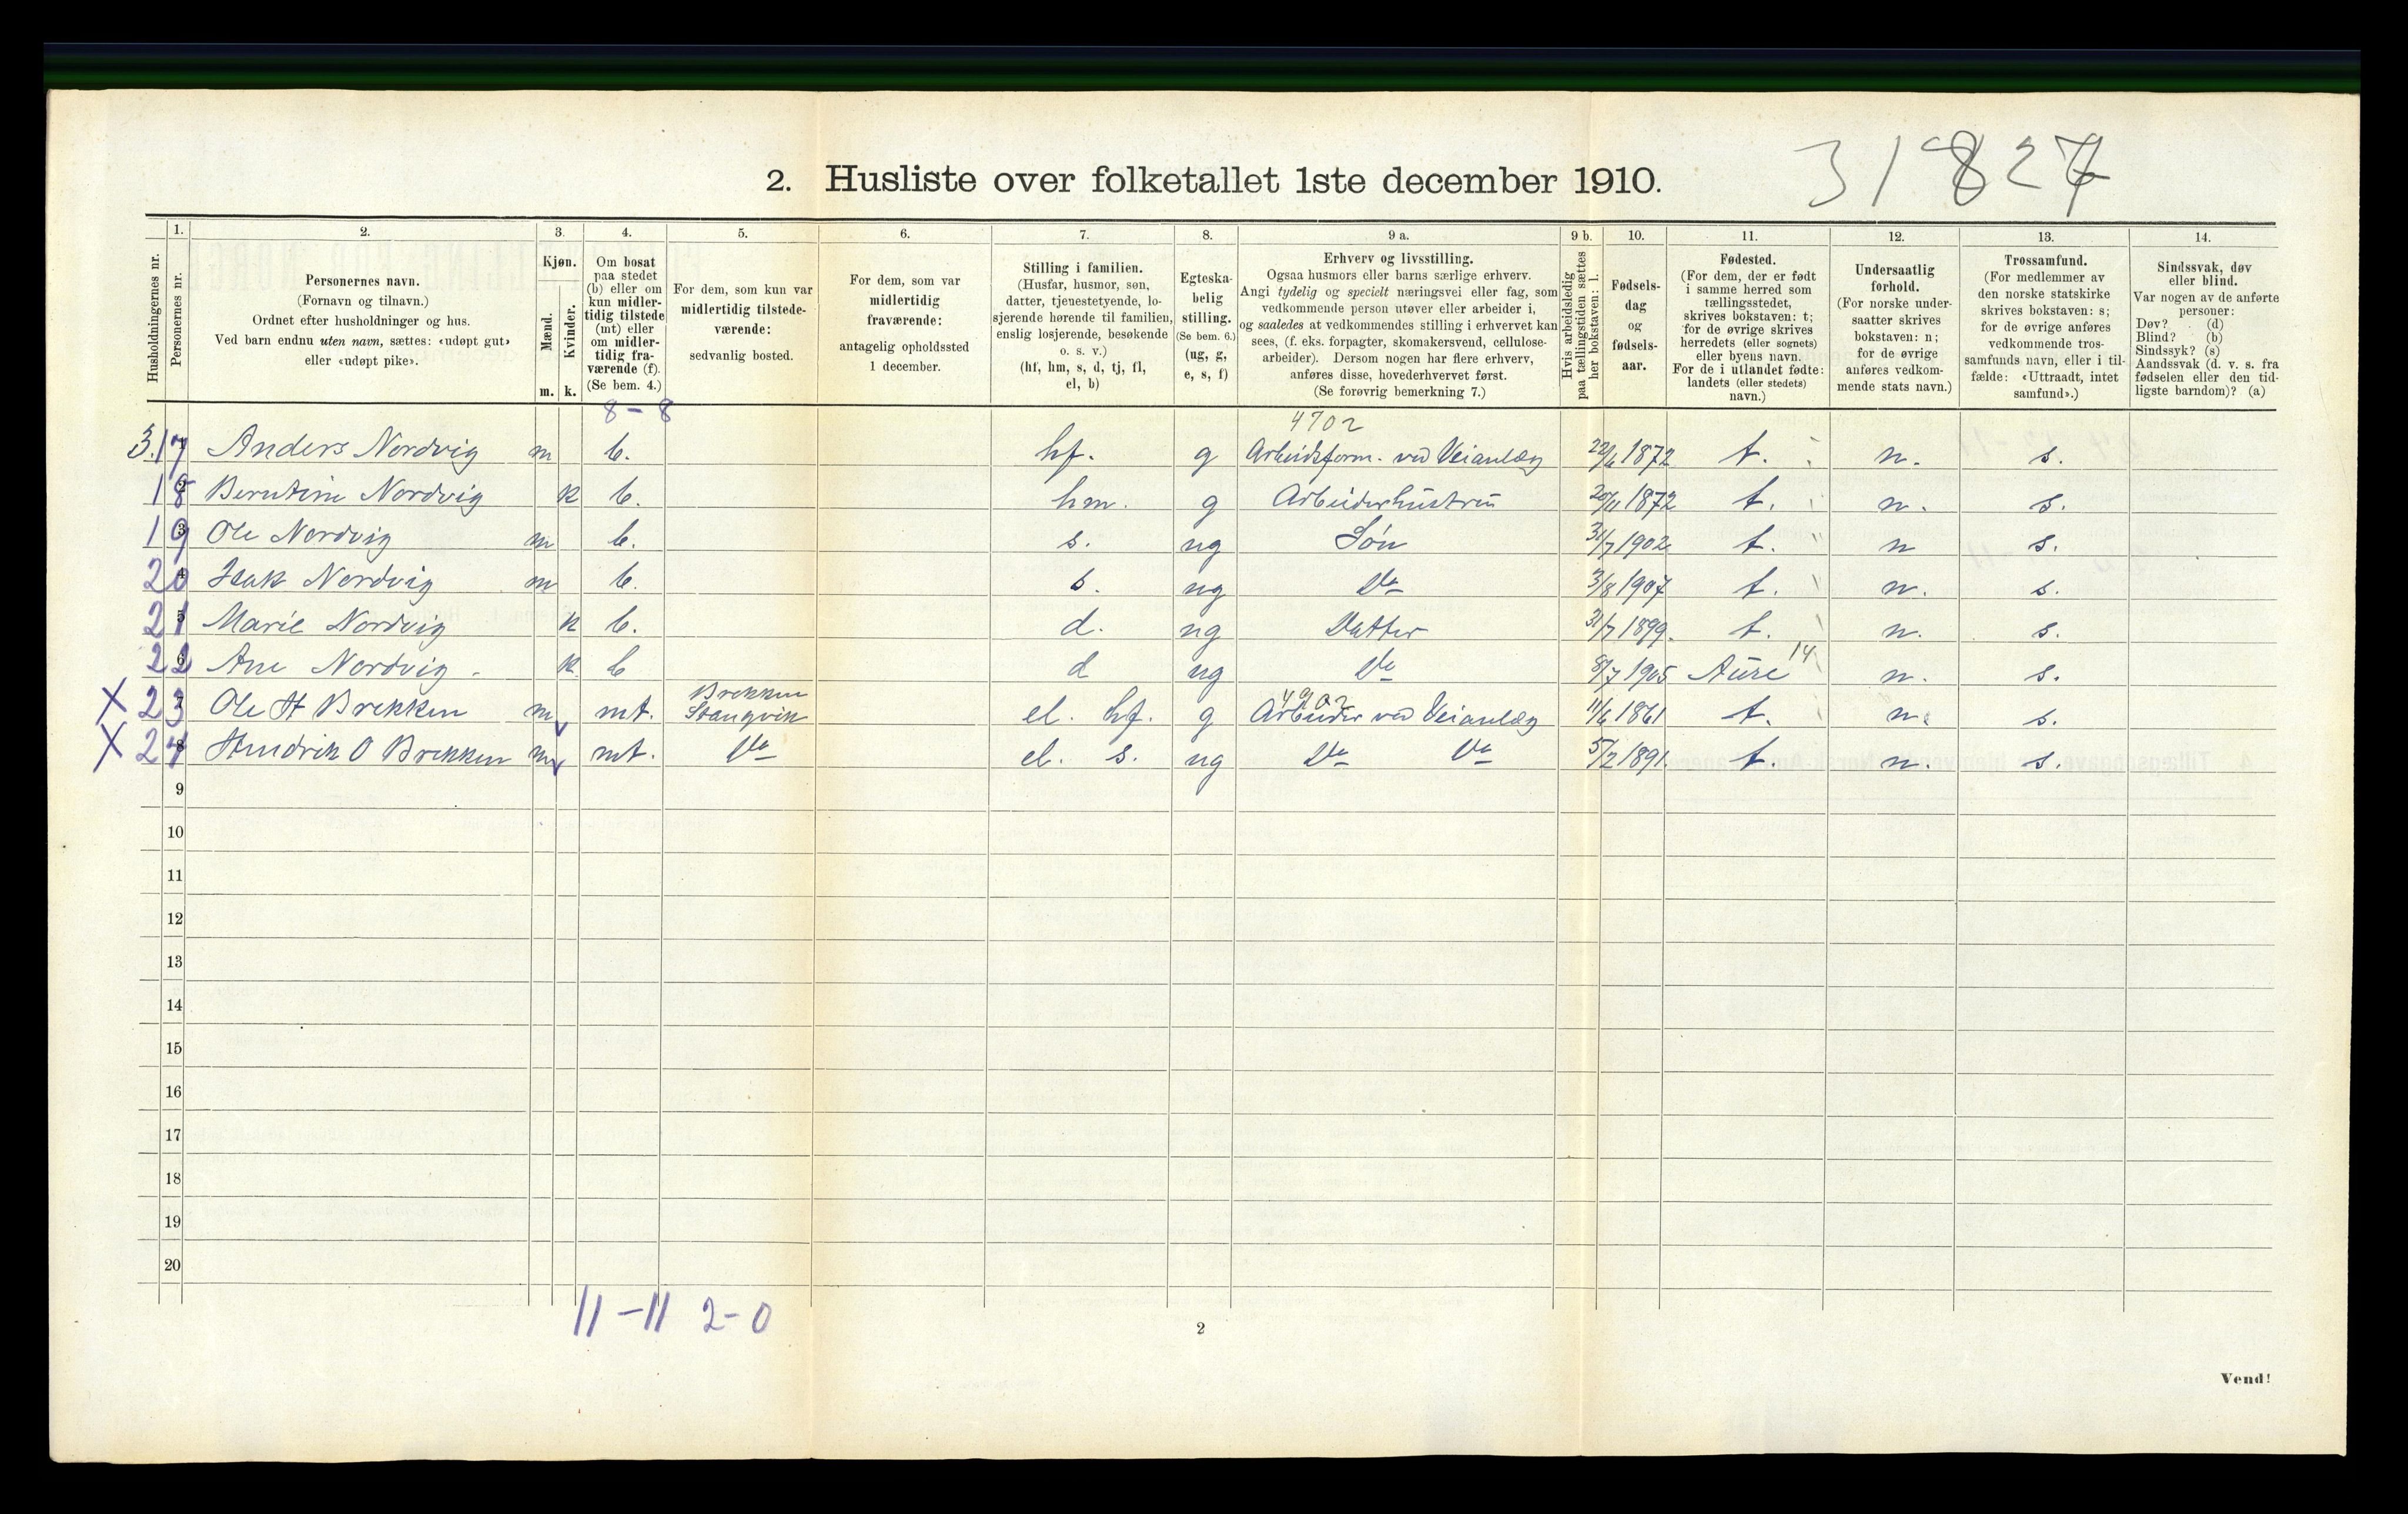 31827
2. Husliste over folketallet 1ste december 1910.
Husholdningernes nr.
1. Personernes nr.
2. Personernes navn.
(Fornavn og tilnavn.)
Ordnet efter husholdninger og hus.
Ved barn endnu uten navn, sættes: «udøpt gut»
eller «udøpt pike».
3. Kjøn.
Mænd. m.
Kvinder. k.
4. Om bosat
paa stedet
(b) eller om
kun midler-
tidig tilstede
(mt) eller
om midler-
tidig fra-
værende (f).
(Se bem. 4.)
5. For dem, som kun var
midlertidig tilstede-
værende:
sedvanlig bosted.
6. For dem, som var
midlertidig
fraværende:
antagelig opholdssted
1 december.
7. Stilling i familien.
(Husfar, husmor, søn,
datter, tjenestetyende, lo-
sjerende hørende til familien,
enslig losjerende, besøkende
o. s. v.)
(hf, hm, s, d, tj, fl,
el, b)
8. Egteska-
belig
stilling.
(Se bem. 6.)
(ug, g,
e, s, f)
9 a. Erhverv og livsstilling.
Ogsaa husmors eller barns særlige erhverv.
Angi tydelig og specielt næringsvei eller fag, som
vedkommende person utøver eller arbeider i,
og saaledes at vedkommendes stilling i erhvervet kan
sees, (f. eks. forpagter, skomakersvend, cellulose-
arbeider). Dersom nogen har flere erhverv,
anføres disse, hovederhvervet først.
(Se forøvrig bemerkning 7.)
9 b. Hvis arbeidsledig
paa tællingstiden sættes
her bokstaven: l.
10. Fødsels-
dag
og
fødsels-
aar.
11. Fødested.
(For dem, der er født
i samme herred som
tællingsstedet,
skrives bokstaven: t;
for de øvrige skrives
herredets (eller sognets)
eller byens navn.
For de i utlandet fødte:
landets (eller stedets)
navn.)
12. Undersaatlig
forhold.
(For norske under-
saatter skrives
bokstaven: n;
for de øvrige
anføres vedkom-
mende stats navn.)
13. Trossamfund.
(For medlemmer av
den norske statskirke
skrives bokstaven: s;
for de øvrige anføres
vedkommende tros-
samfunds navn, eller i til-
fælde: «Uttraadt, intet
samfund».)
14. Sindssvak, døv
eller blind.
Var nogen av de anførte
personer:
Døv? (d)
Blind? (b)
Sindssyk? (s)
Aandssvak (d. v. s. fra
fødselen eller den tid-
ligste barndom)? (a)
8-8
4702
3. 17 Anders Nordvig m b. hf. g Arbeidsform. ved Veianlæg 22/6 1872 t. n. s.
18 Berntine Nordvig k b. hm. g Arbeiderhustru 20/11 1872 t. n. s.
19 Ole Nordvig m b. s. ug Søn 31/7 1902 t. n s.
20 Isak Nordvig m b. s. ug Do 3/8 1907 t. n. s.
21 Marie Nordvig k b. d. ug Datter 31/7 1899. t. n. s.
22 Ane Nordvig k b d ug Do 8/7 1905 Aure 14 n. s.
X 23 Ole H Brekken m mt. Brekken Stangvik el. hf. g 4902 Arbeider ved Veianlæg 11/6 1861 t. n. s.
X 24 Hendrik O Brekken m mt. Do el. s. ug Do Do 5/2 1891. t. n. s.
9
10
11
12
13
14
15
16
17
18
19
20
11-11 2-0
2
Vend!